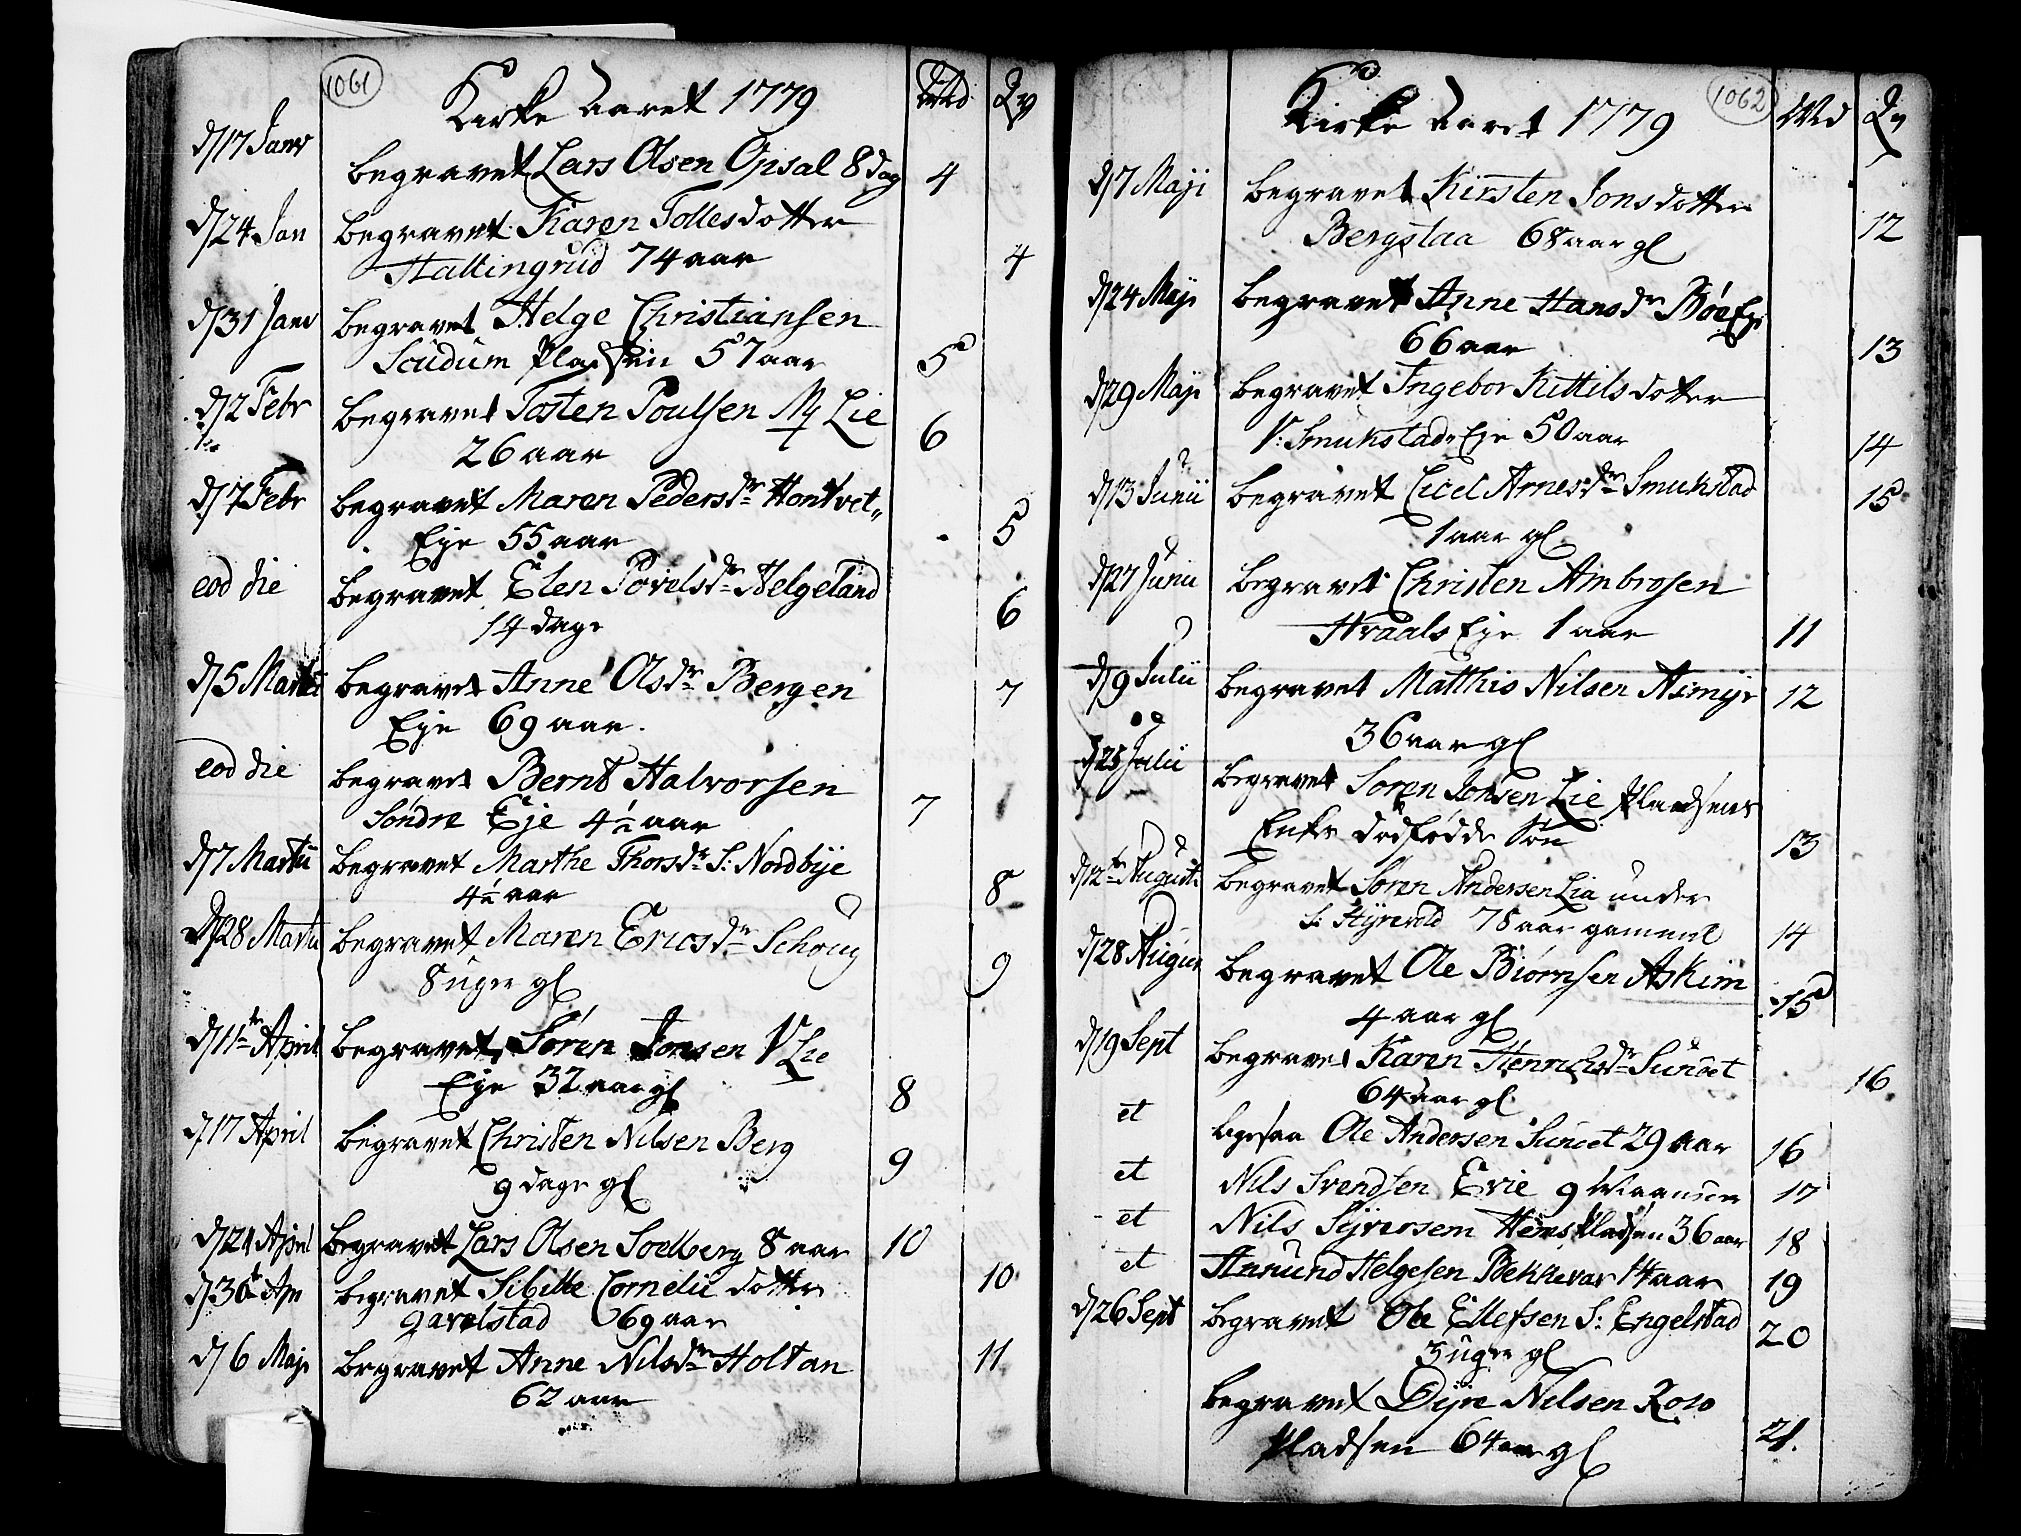 1061
Kirke Aaret 1779 Md Qv
d/17 Janv begravet Lars Olsen Opsal 8 dag 4
d/24 Jan begravet Karen Tollesdotter
Hallingrud 74 aar 4
d/31 Janv begravet Helge Christiansen
Scudum Pladsen 57 aar 5
d/2 Febr begravet Tosten Poulsen Ny Lie
26 aar 6
d/7 Febr begravet Maren Pedersdr Hontvet
Eje 55 aar 5
eod die begravet Elen Povelsdr Helgeland
14 dage 6
d/5 Martii begravet Anne Olsdr Bergen
Eje 69 aar. 7
eod die begravet Bernt Halvorsen
Søndre Eje 4½ aar 7
d/7 Martii begravet Marthe Thorsdr S: Nordbye
4½ aar 8
d/28 Martii begravet Maren Ericsdr Schoug
8 uger gl 9
d/11te April begravet Søren Jonsen V Lie
Eje 32 aar gl 8
d/17 April begravet Christen Nilsen Berg
9 dage gl 9
d/21 April begravet Lars Olsen Soelberg 8 aar 10
d/30t Ap begravet Sibille Cornelii dotter
Qavelstad 69 aar 10
d/6 Maji begravet Anne Nilsdr Holtan
62 aar 11
1062
Kirke Aaret 1779 Md Qv
d/7 Maji begravet Kirsten Jonsdotter
Bergstaa 68 aar gl 12
d/24 Maji begravet Anne Hansdr Bøe Eje
66 aar 13
d/29 Maji begravet Ingebor Kittilsdotter
V: Smukstads Eje 50 aar 14
d/13 Junii begravet Cicel Arnesdr Smukstad 15
1 aar gl
d/27 Junii begravet Christen Ambrosen
Hvaals Eje 1 aar 11
d/9 Julii begravet Matthis Nilsen Asmyr 12
36 aar gl
d/25 Julii begravet Soren Jonsen Lie Pladsens
Enke dødfødde Søn 13
d/12te Augusti begravet Søren Andersen Lia under
S: Hyrevold 78 aar gamml 14
d/28 Augus begravet Ole Biørnsen Askim
4 aar gl 15
d/19 Sept begravet Karen Henrichsdr Sundet
64 aar gl 16
et ligesaa Ole Andersen Sundet 29 aar 16
et Nils Svendsen Evie 9 Maaneder 17
et Nils Syversen Hems Pladsen 36 aar 18
et Anund Helgesen Bekkevar 14 aar 19
d/26 Sept begravet Ole Ellefsen S: Engelstad 20
3 uger gl
begravet Dyre Nilsen
Pladsen 64 aar gl 21.